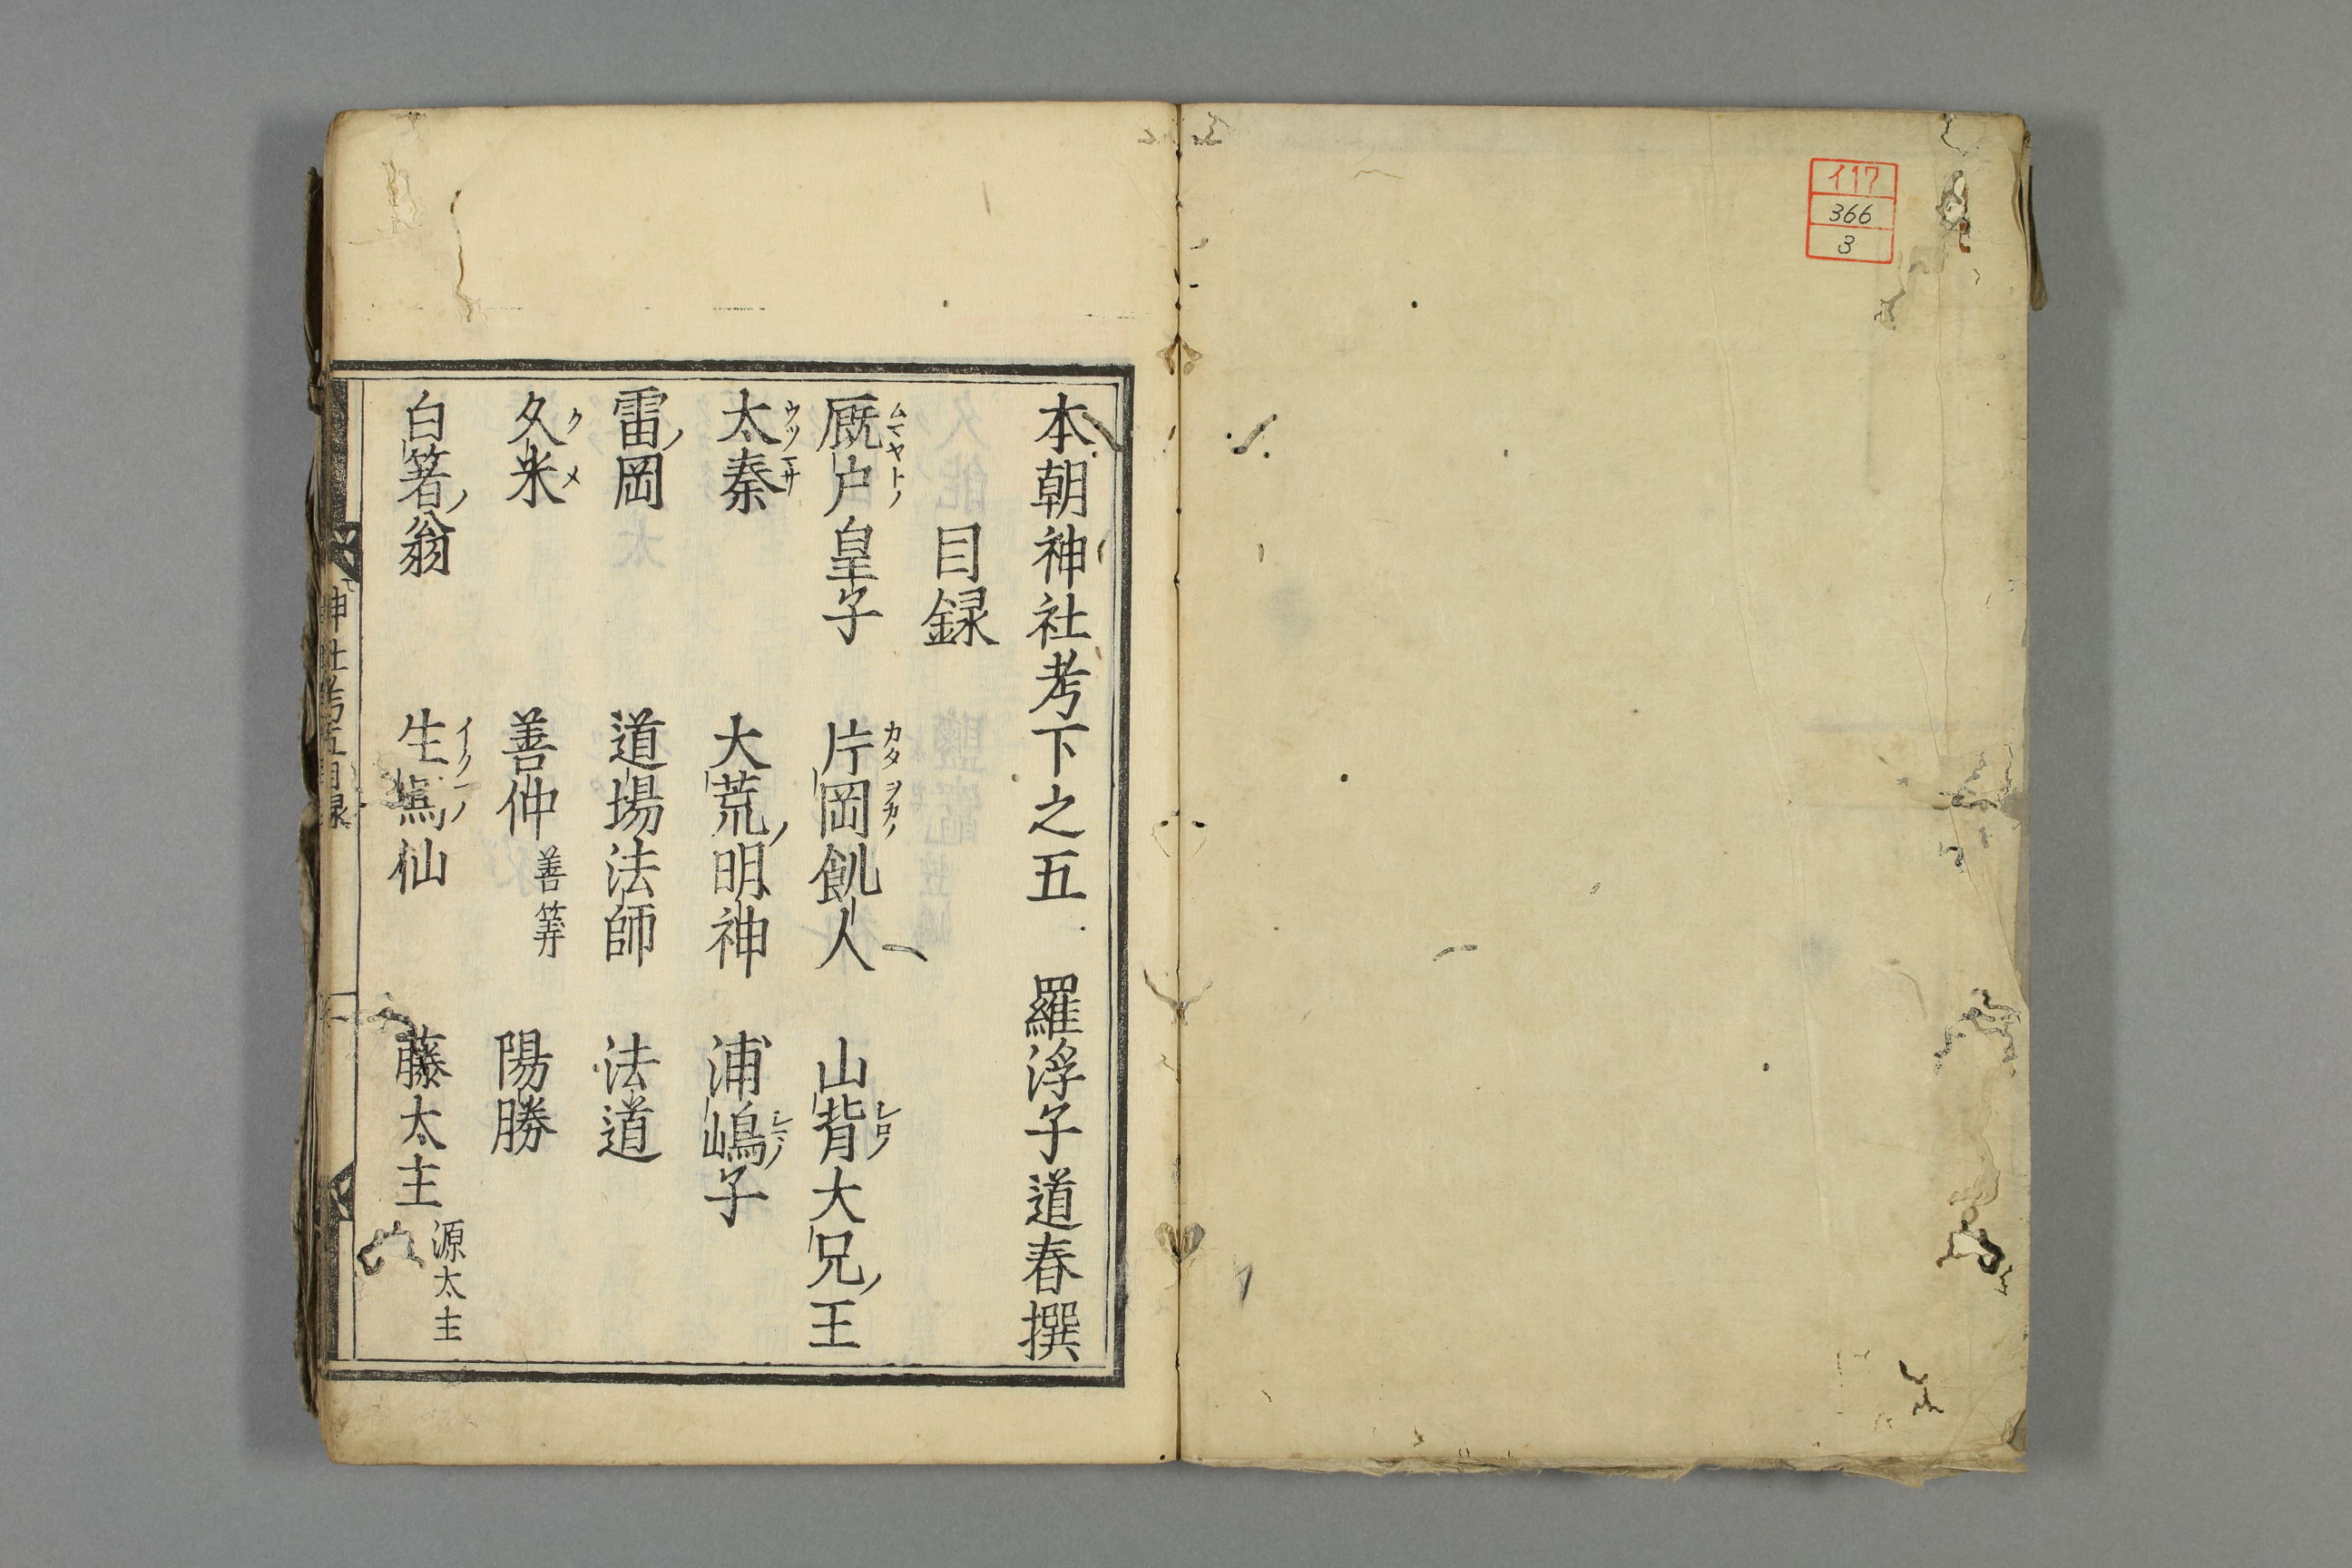 イ17
366
3
本朝神社考下之五 羅浮子道春撰
目録
厩戸皇子 片岡飢人 山背大兄王
太秦 大荒明神 浦嶋子
雷岡 道場法師 法道
久米 善仲 善算 陽勝
白箸翁 生馬仙 藤太主 源太主
神社考五目録